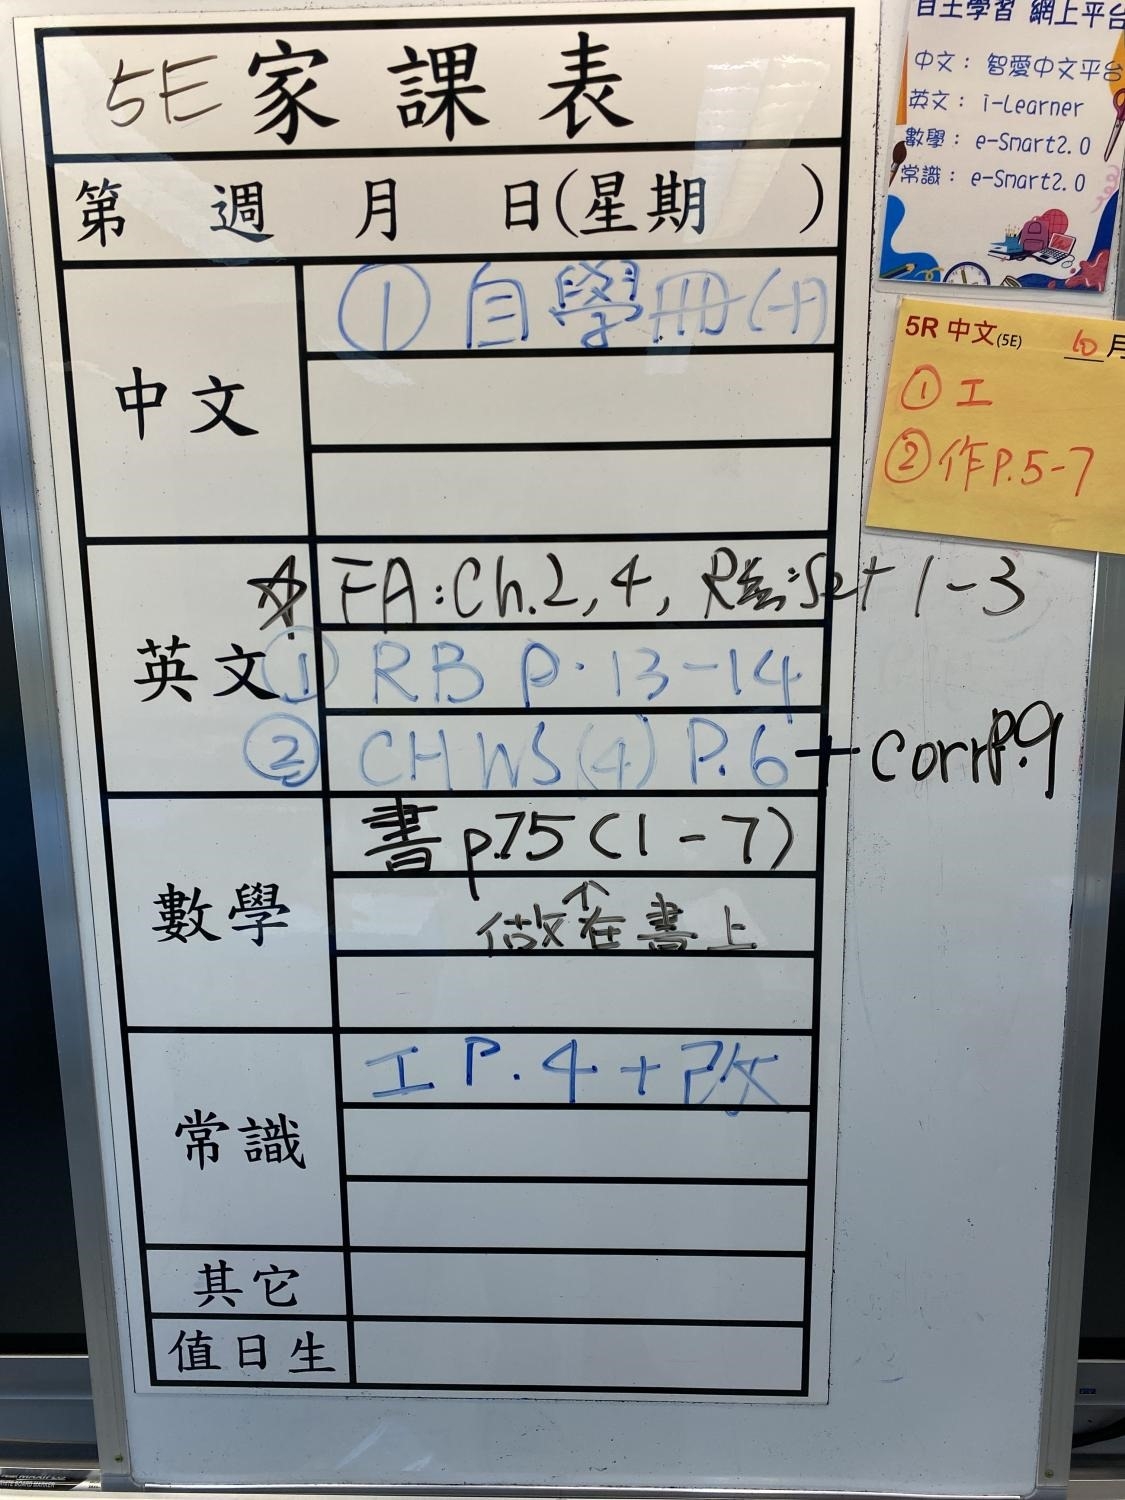 5E 家課表
第 週 月 日(星期 )
中文
① 自學冊(十)
英文
☆ FA: Ch.2, 4, R Set 1-3
① RB P.13-14
② CHWS(4) P.6 + corr P.9
數學
書 p.75 (1-7)
↑
做在書上
常識
工 P.4 + 改
其它
值日生
自主學習 網上平台
中文： 智愛中文平台
英文： i-Learner
數學： e-Smart2.0
常識： e-Smart2.0
5R 中文(5E) 10 月
① 工
② 作P.5-7
WHITE BOARD MARKER